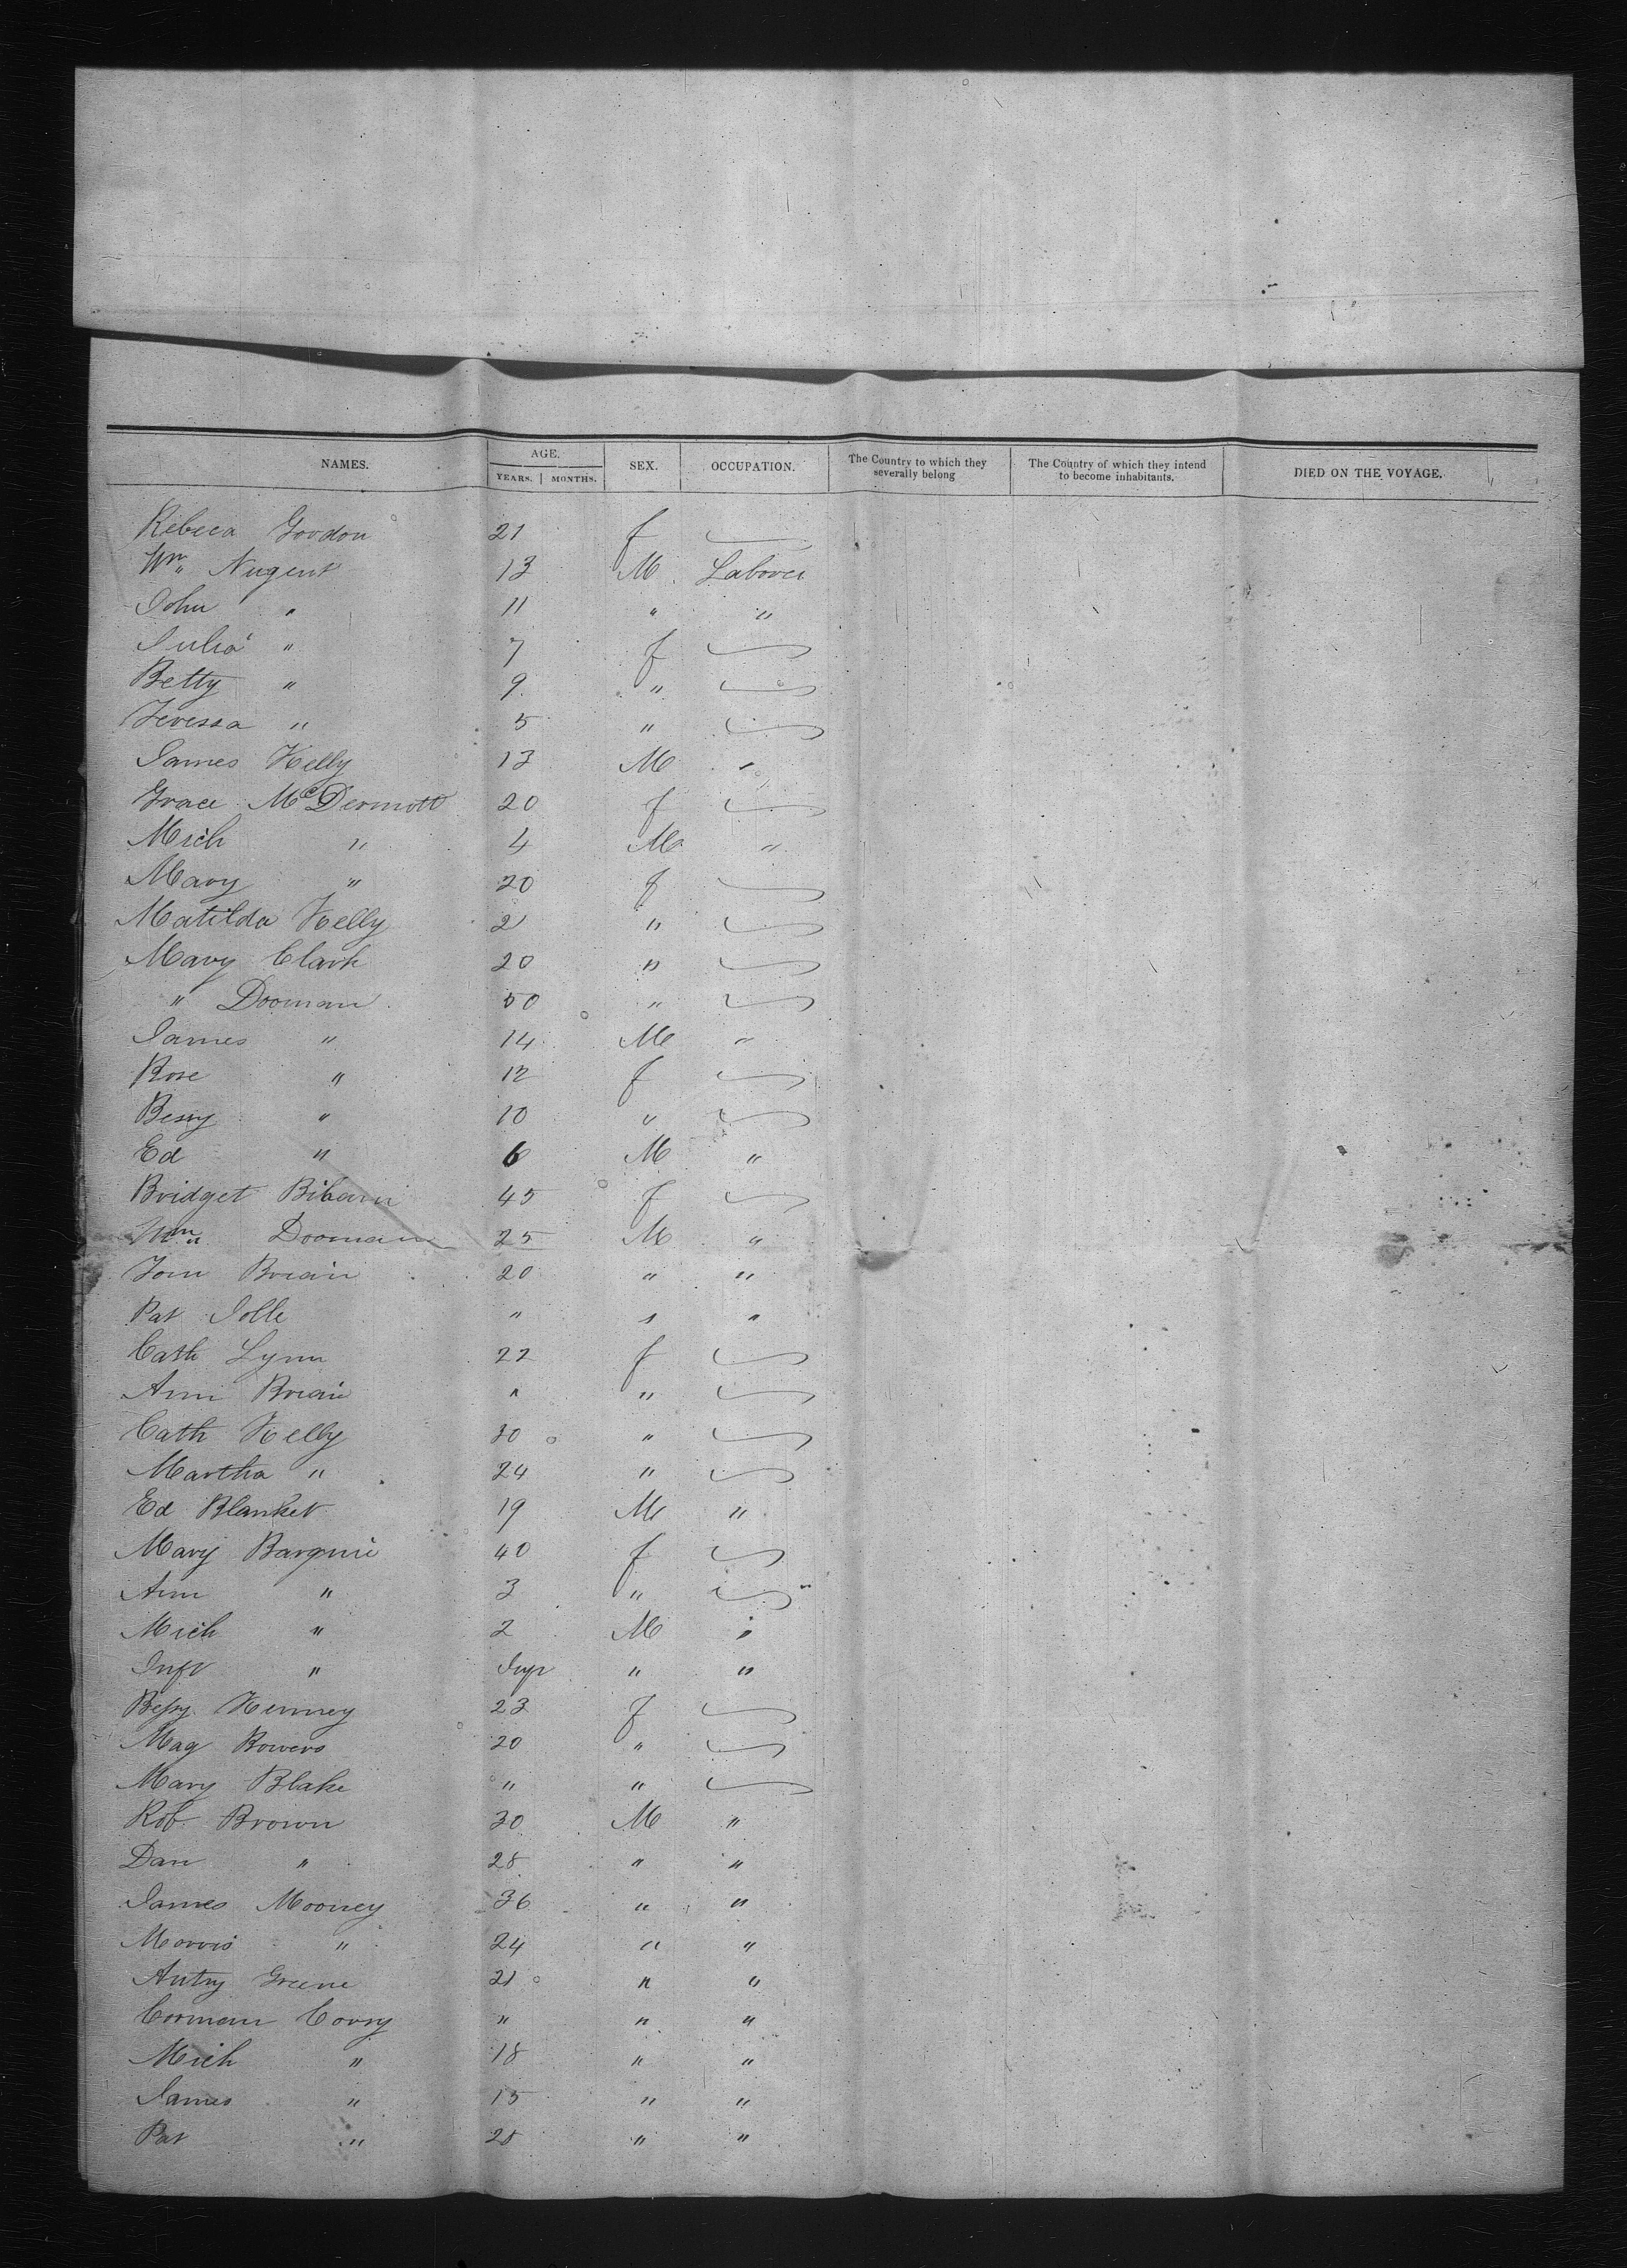 NAMES. AGE. YEARS. MONTHS. SEX. OCCUPATION. The Country to which they severally belong The Country of which they intend to become inhabitants. DIED ON THE VOYAGE.
Rebeca Gordon 21 f
Wm Nugent 13 M Laborer
John " 11 " "
Julia " 7 f
Betty " 9 "
Teressa " 5 "
James Kelly 13 M "
Grace McDermott 20 f
Mich " 4 M "
Mary " 20 f
Matilda Kelly 21 "
Mary Clark 20 "
" Dooman 50 "
James " 14 M "
Rose " 12 f
Bessy " 10 "
Ed " 6 M "
Bridget 45 f
Wm Dooman 25 M "
Tom Brian 20 " "
Pat Jolle " " "
Cath Lynn 22 f
Ann Brian " "
Cath Kelly 30 "
Martha " 24 "
Ed Blanket 19 M "
Mary 40 f
Ann " 3 "
Mich " 2 M "
Inft " Inft " "
Bessy Kenney 23 f
Mag Bowers 20 "
Mary Blake " "
Rob Brown 30 M "
Dan " 28 " "
James Mooney 36 " "
Morris " 24 " "
Antny Greene 21 " "
Corman Corry " " "
Mich " 18 " "
James " 15 " "
Pat " 28 " "